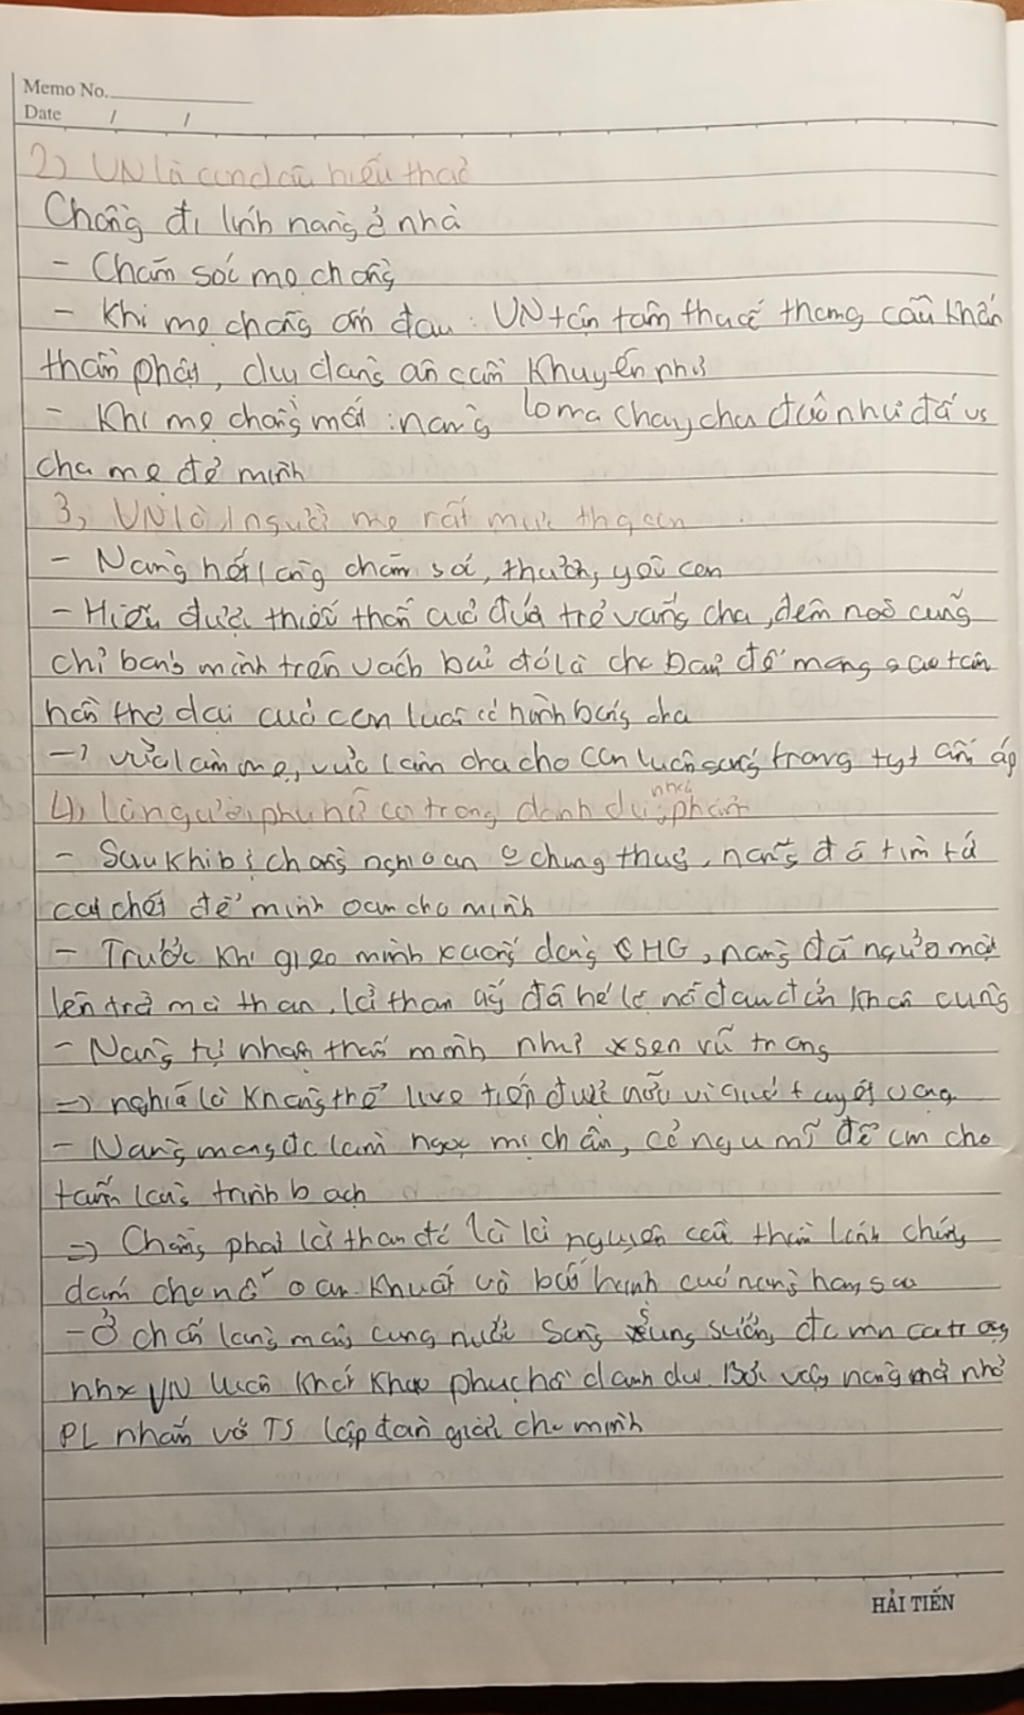 Memo No.
Date / /
2) VN là con dâu hiếu thảo
Chồng đi lính nàng ở nhà
- Chăm sóc mẹ chồng
- Khi mẹ chồng ốm đau: VN tận tâm thuốc thang cầu khấn
thần phật, dịu dàng ân cần khuyên nhủ
- Khi mẹ chồng mất: nàng lo ma chay chu đáo như đối vs
cha mẹ đẻ mình
3, VN là 1 người mẹ rất mực thg con
- Nàng hết lòng chăm sóc, thương yêu con
- Hiểu được thiếu thốn của đứa trẻ vắng cha, đêm nào cũng
chỉ bóng mình trên vách bảo đó là cha Đản để mong sao tâm
hồn thơ dại của con luôn có hình bóng cha
→ vừa làm mẹ, vừa làm cha cho con luôn sống trong ty ấm áp
4, là người phụ nữ coi trọng danh dự, nhân phẩm
- Sau khi bị chồng nghi oan k chung thuỷ, nàng đã tìm tới
cái chết để minh oan cho mình
- Trước khi gieo mình xuống dòng SHG, nàng đã ngửa mặt
lên trời mà than, lời than ấy đã hé lộ nỗi đau đớn khôn cùng
- Nàng tự nhận thấy mình như sen rũ trong
=> nghĩa là không thể tiến được nữa vì quá tuyệt vọng
- Nàng mong đc làm ngọc mị châu, cỏ ngu mĩ để cm cho
tấm lòng trinh bạch
=> Chẳng phải lời than đó là lời nguyện cầu thần linh chứng
dám cho nỗi oan khuất và bất hạnh của nàng hay sao
- Ở chốn làng mây cung nước sống sung sướng đc mn coi trọng
VN luôn khát khao phục hồi danh dự. Bởi vậy nàng mới nhờ
PL nhắn với TS lập đàn giải cho mình
HẢI TIẾN